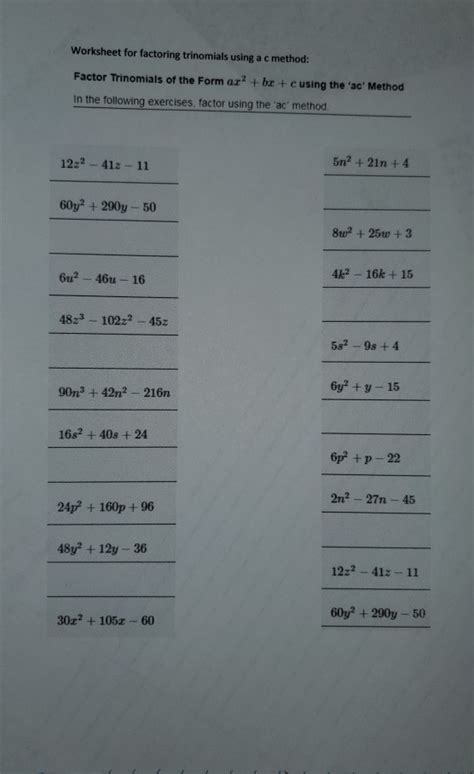 Worksheet for factoring trinomials using a c method:
Factor Trinomials of the Form ax² + bx + c using the 'ac' Method
In the following exercises, factor using the 'ac' method.
12z² − 41z − 11
60y² + 290y − 50
6u² − 46u − 16
48z³ − 102z² − 45z
90n³ + 42n² − 216n
16s² + 40s + 24
24p² + 160p + 96
48y² + 12y − 36
30x² + 105x − 60
5n² + 21n + 4
8w² + 25w + 3
4k² − 16k + 15
5s² − 9s + 4
6y² + y − 15
6p² + p − 22
2n² − 27n − 45
12z² − 41z − 11
60y² + 290y − 50